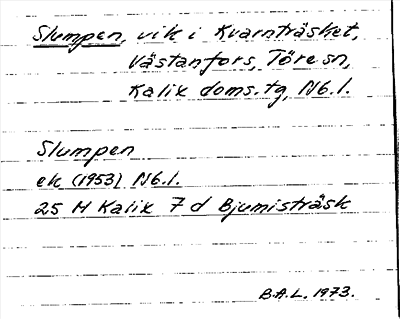 Slumpen, vik i Kvarnträsket,
Västanfors, Töre sn,
Kalix doms.tg, Nb.l.
Slumpen
ek (1953) Nb.l.
25 M Kalix 7 d Bjumisträsk
B.A.L. 1973.